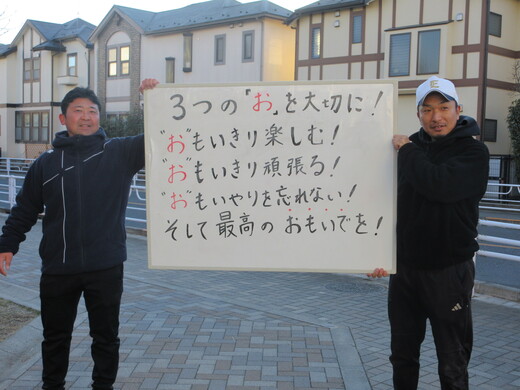 3つの「お」を大切に!
"お"もいきり楽しむ!
"お"もいきり頑張る!
"お"もいやりを忘れない!
そして最高のおもいでを!